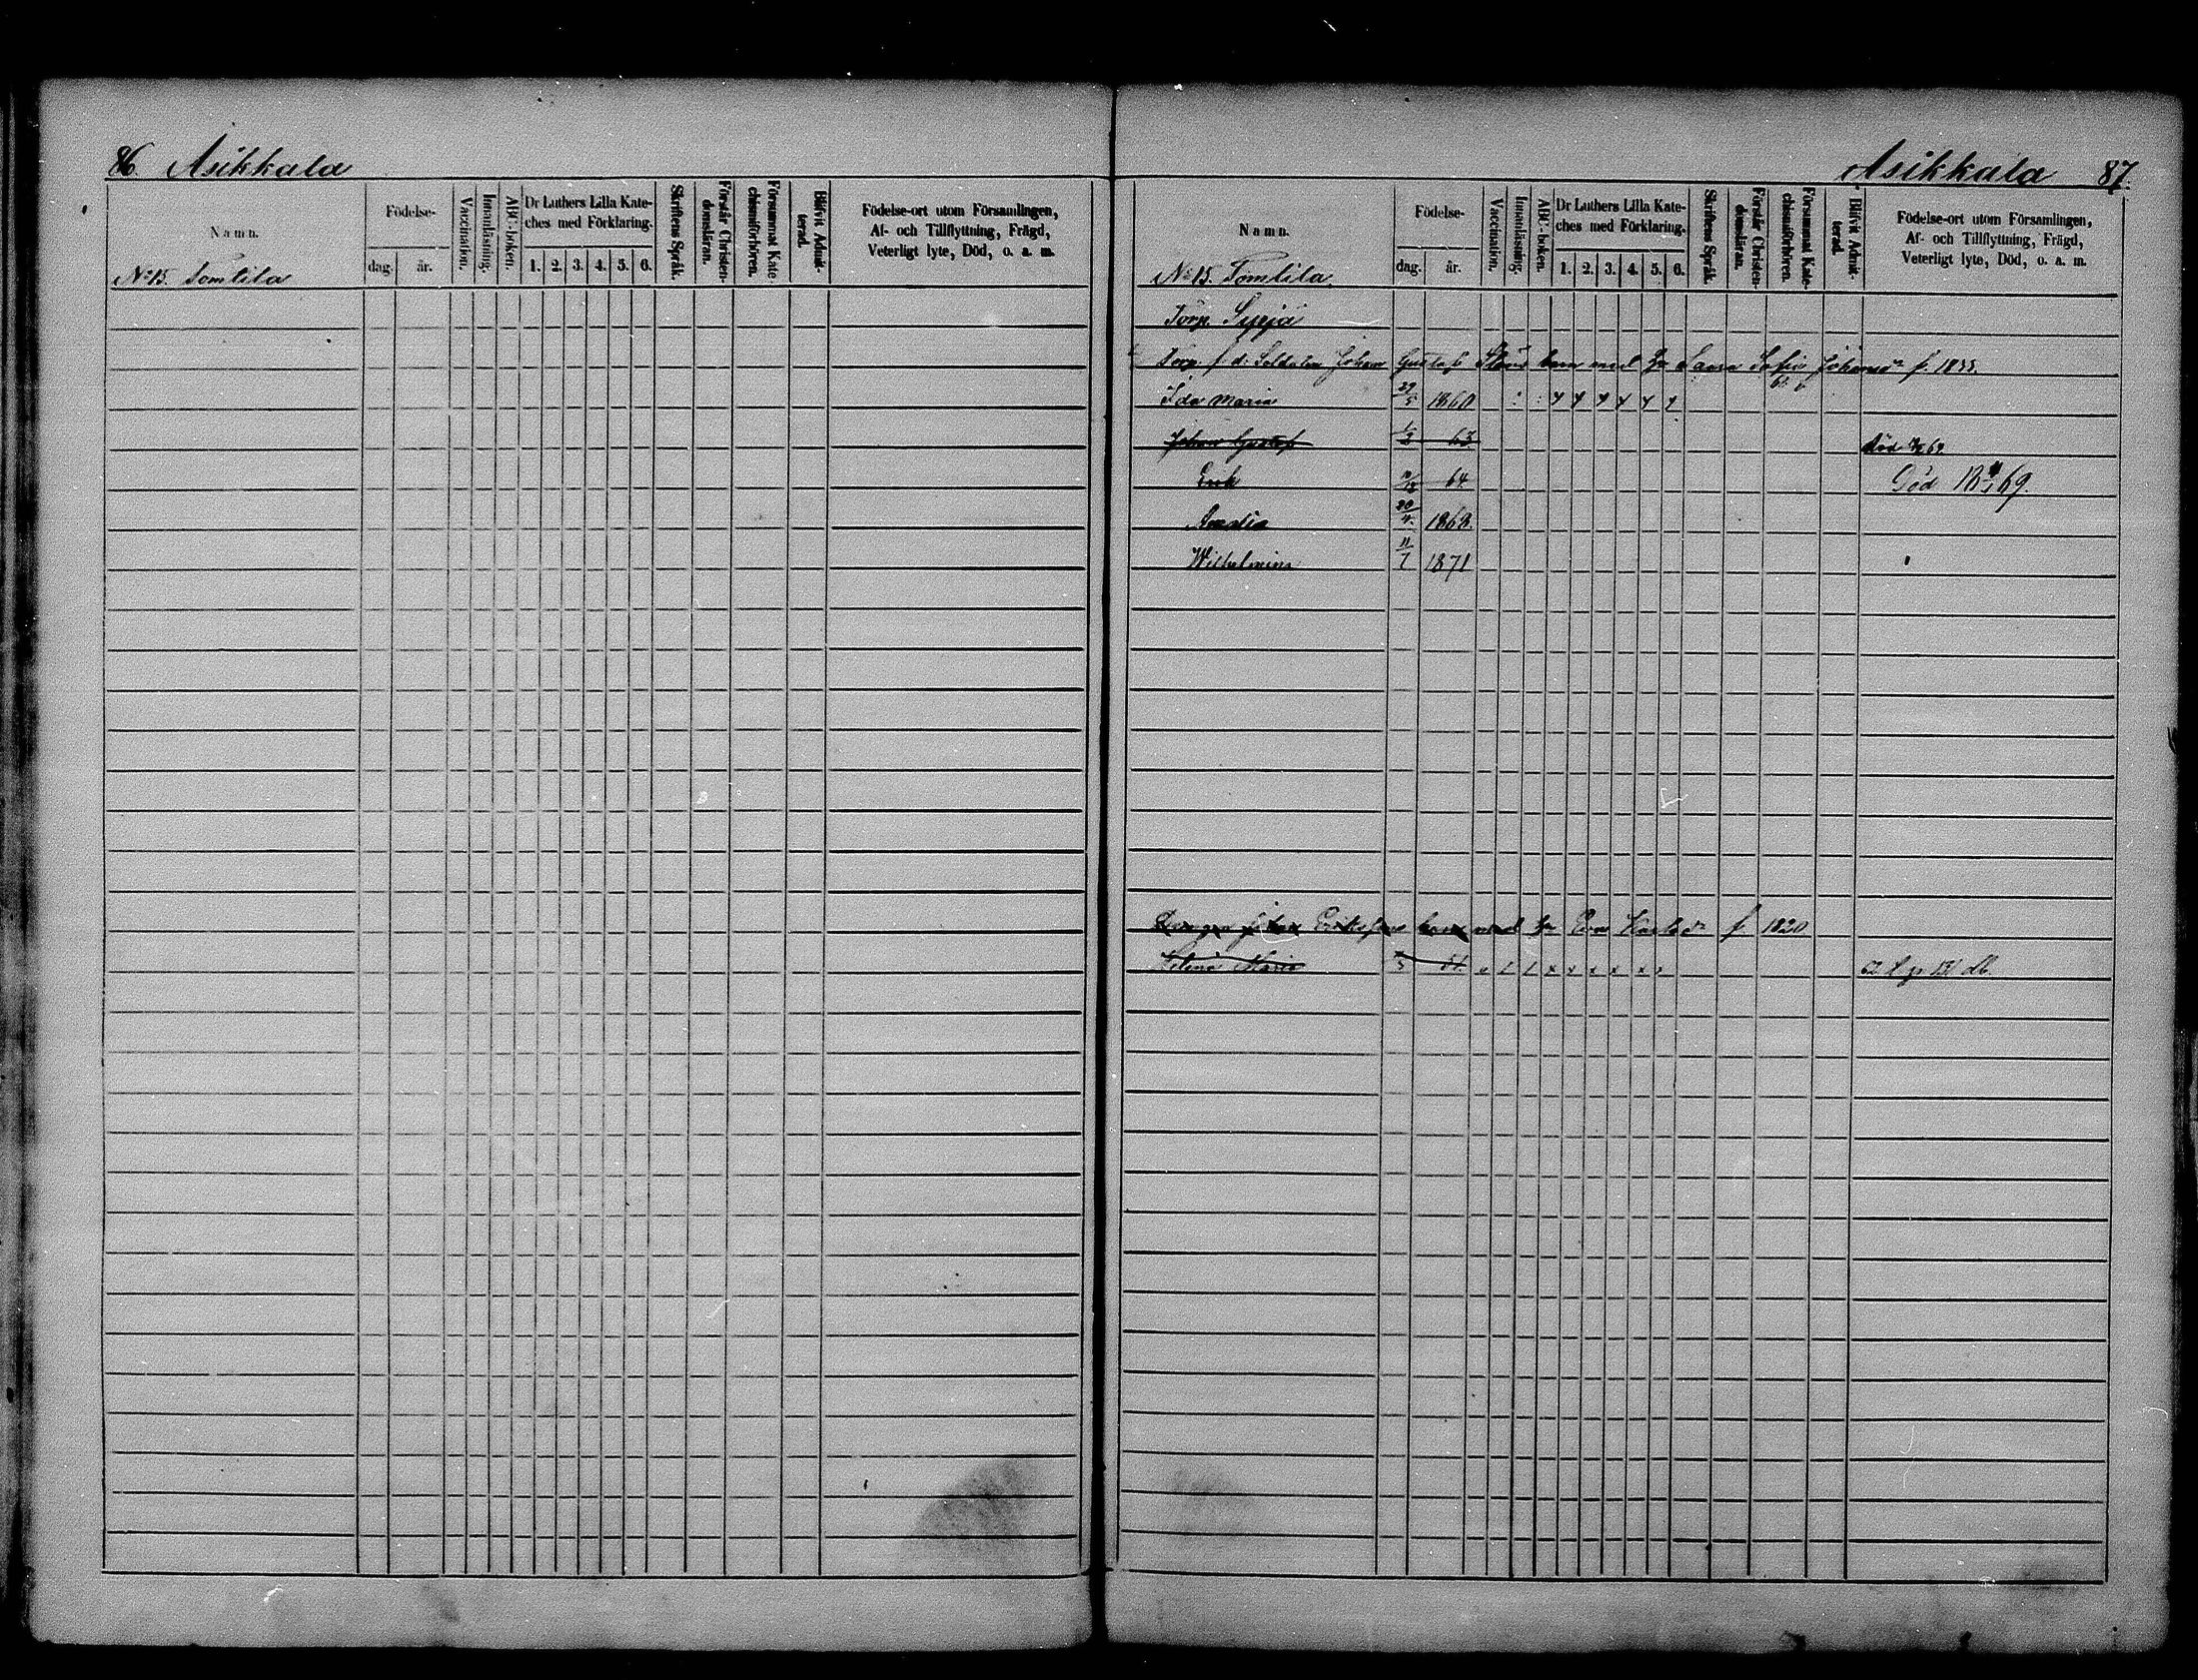 86 Asikkala
Namn.
Födelse-
dag. år.
Vaccination.
Innanläsning.
ABC-boken.
Dr Luthers Lilla Kate-
ches med Förklaring.
1. 2. 3. 4. 5. 6.
Skriftens Språk.
Förstår Christen-
domsläran.
Försummat Kate-
chismiförhören.
Blifvit Admit-
terad.
Födelse-ort utom Församlingen,
Af- och Tillflyttning, Frägd,
Veterligt lyte, Död, o. a. m.
No 15. Tomtila
Asikkala 87.
Namn.
Födelse-
dag. år.
Vaccination.
Innanläsning.
ABC-boken.
Dr Luthers Lilla Kate-
ches med Förklaring.
1. 2. 3. 4. 5. 6.
Skriftens Språk.
Förstår Christen-
domsläran.
Försummat Kate-
chismiförhören.
Blifvit Admit-
terad.
Födelse-ort utom Församlingen,
Af- och Tillflyttning, Frägd,
Veterligt lyte, Död, o. a. m.
No 15. Tomtila
Torp. Syrjä
Torp. f. d. Soldaten Johan Gustaf barn med Sofia f.
Ida Maria 29/5 1860
Johan Gustaf 63 död 69
Erik 64 Död 69.
Amalia 20/4 1868
Wilhelmina 11/7 1871
Eriksson barn med Eva f 1820
Helena Maria 51